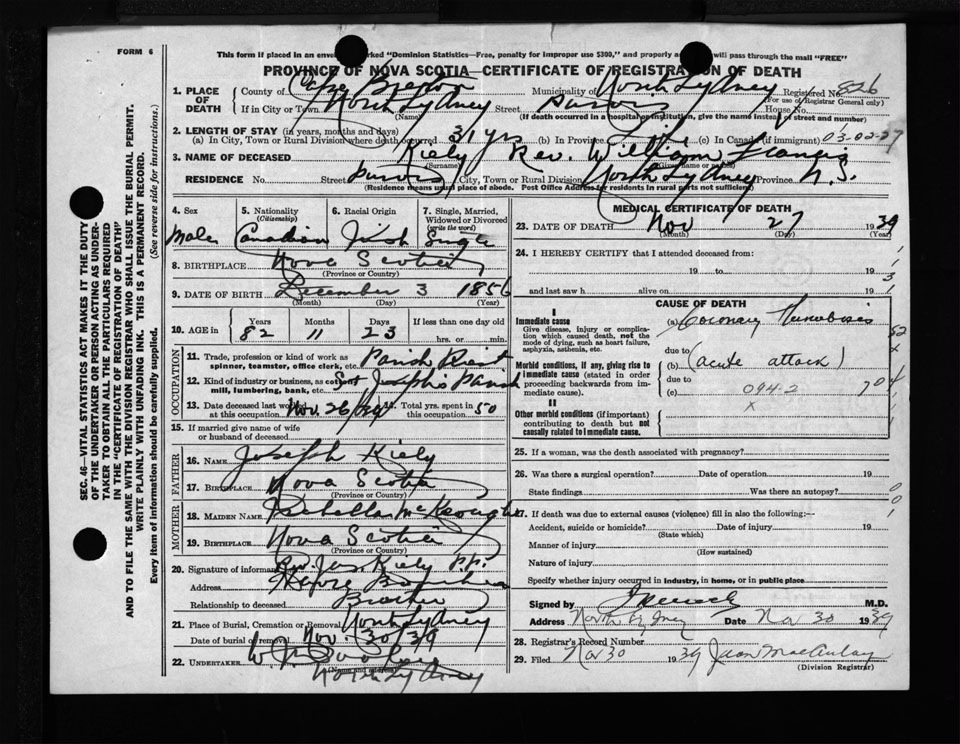 FORM 6
This form if placed in an envelope marked "Dominion Statistics—Free, penalty for improper use $300," and properly will pass through the mail "FREE"
PROVINCE OF NOVA SCOTIA—CERTIFICATE OF REGISTRATION OF DEATH
1. PLACE OF DEATH County of Cape Breton Municipality of North Sydney Registered No. 826
(For use of Registrar General only)
If in City or Town North Sydney Street Purves House No.
(Name) (If death occurred in a hospital or institution, give the name instead of street and number)
2. LENGTH OF STAY (in years, months and days)
(a) In City, Town or Rural Division where death occurred 31 yrs (b) In Province Life (c) In Canada (if immigrant) 03-02-27
3. NAME OF DECEASED Kiely Rev. William Francis
(Surname) (Given name or names)
RESIDENCE No. Street Purves City, Town or Rural Division North Sydney Province N.S.
(Residence means usual place of abode. Post Office Address for residents in rural parts not sufficient)
SEC. 46—VITAL STATISTICS ACT MAKES IT THE DUTY
OF THE UNDERTAKER OR PERSON ACTING AS UNDER-
TAKER TO OBTAIN ALL THE PARTICULARS REQUIRED
IN THE "CERTIFICATE OF REGISTRATION OF DEATH"
AND TO FILE THE SAME WITH THE DIVISION REGISTRAR WHO SHALL ISSUE THE BURIAL PERMIT.
WRITE PLAINLY WITH UNFADING INK. THIS IS A PERMANENT RECORD.
Every item of information should be carefully supplied. (See reverse side for instructions.)
4. Sex 5. Nationality 6. Racial Origin 7. Single, Married,
(Citizenship) Widowed or Divorced
(write the word)
Male Canadian Irish Single
8. BIRTHPLACE Nova Scotia
(Province or Country)
9. DATE OF BIRTH December 3 1856
(Month) (Day) (Year)
10. AGE in Years Months Days If less than one day old
82 11 23 hrs. or min.
OCCUPATION
11. Trade, profession or kind of work as Parish Priest
spinner, teamster, office clerk, etc.
12. Kind of industry or business, as cotton St Joseph's Parish
mill, lumbering, bank, etc.
13. Date deceased last worked Nov. 26 Total yrs. spent in 50
at this occupation this occupation
15. If married give name of wife
or husband of deceased
FATHER
16. NAME Joseph Kiely
17. BIRTHPLACE Nova Scotia
(Province or Country)
MOTHER
18. MAIDEN NAME Isabella McKeough
19. BIRTHPLACE Nova Scotia
(Province or Country)
20. Signature of informant Rev. Jas. Kiely P.P.
Address Havre Boucher
Relationship to deceased Brother
21. Place of Burial, Cremation or Removal North Sydney
Date of burial or removal Nov. 30/39
22. UNDERTAKER
(Name and address)
North Sydney
MEDICAL CERTIFICATE OF DEATH
23. DATE OF DEATH Nov 27 1939
(Month) (Day) (Year)
24. I HEREBY CERTIFY that I attended deceased from:
19 to 19
and last saw h alive on 19
CAUSE OF DEATH
I
Immediate cause (a) Coronary Thrombosis
Give disease, injury or complica-
tion which caused death, not the
mode of dying, such as heart failure,
asphyxia, asthenia, etc.
due to
Morbid conditions, if any, giving rise to (b) (acute attack)
immediate cause (stated in order
proceeding backwards from im-
mediate cause).
due to
(c) 094.2
x
II
Other morbid conditions (if important)
contributing to death but not
causally related to immediate cause.
25. If a woman, was the death associated with pregnancy?
26. Was there a surgical operation? Date of operation 19
State findings Was there an autopsy?
27. If death was due to external causes (violence) fill in also the following:—
Accident, suicide or homicide? Date of injury 19
(State which)
Manner of injury
(How sustained)
Nature of injury
Specify whether injury occurred in industry, in home, or in public place
Signed by M.D.
Address North Sydney Date Nov 30 1939
28. Registrar's Record Number
29. Filed Nov 30 1939 Jean MacAulay
(Division Registrar)